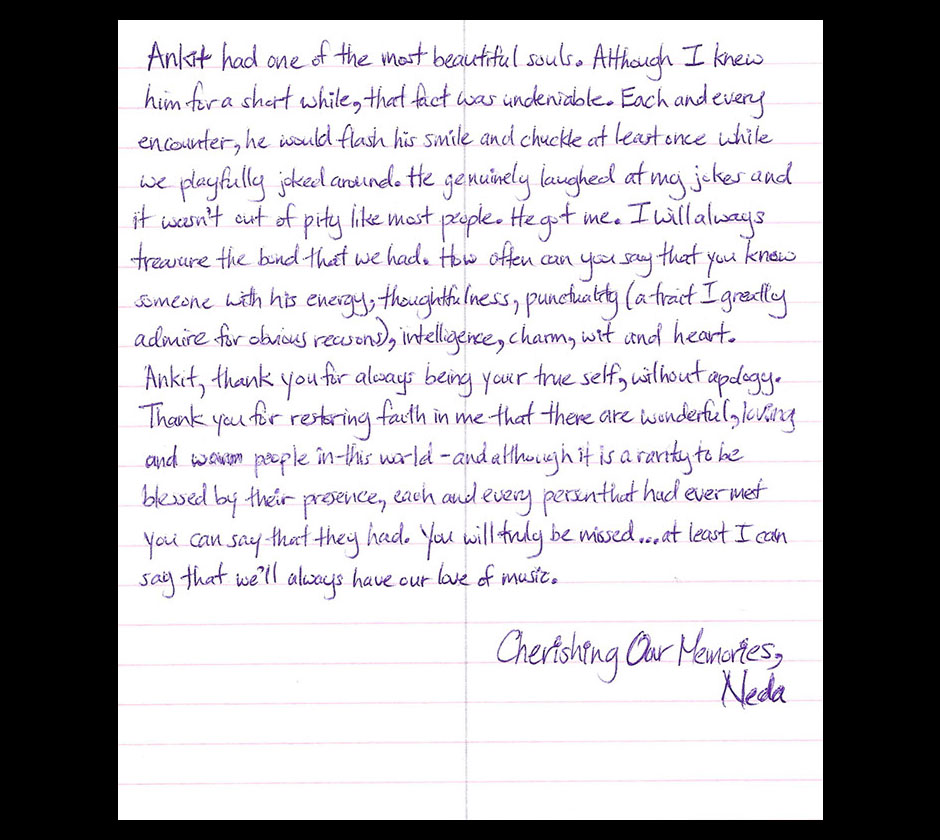 Ankit had one of the most beautiful souls. Although I knew
him for a short while, that fact was undeniable. Each and every
encounter, he would flash his smile and chuckle at least once while
we playfully joked around. He genuinely laughed at my jokes and
it wasn't out of pity like most people. He got me. I will always
treasure the bond that we had. How often can you say that you know
someone with his energy, thoughtfulness, punctuality (a trait I greatly
admire for obvious reasons), intelligence, charm, wit and heart.
Ankit, thank you for always being your true self, without apology.
Thank you for restoring faith in me that there are wonderful, loving
and warm people in this world - and although it is a rarity to be
blessed by their presence, each and every person that had ever met
you can say that they had. You will truly be missed...at least I can
say that we'll always have our love of music.
Cherishing Our Memories,
Neda